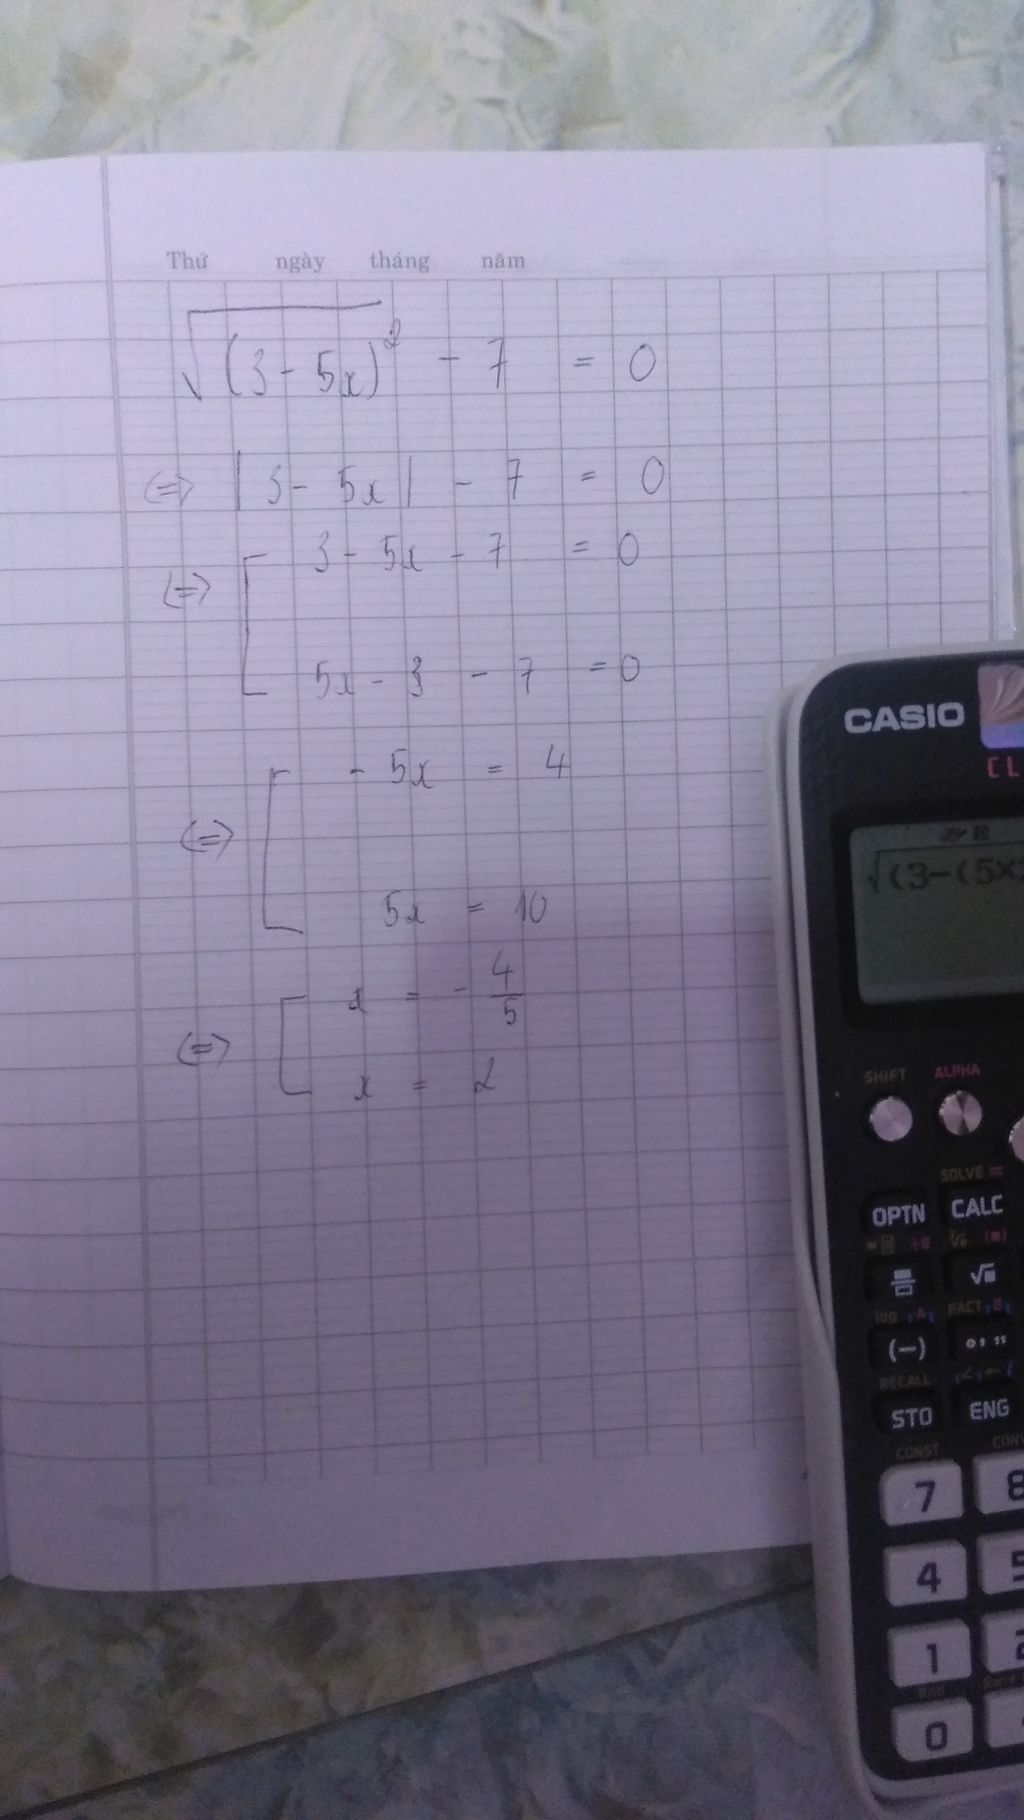 Thứ ngày tháng năm
√(3 - 5x)² - 7 = 0
<=> |3 - 5x| - 7 = 0
<=> [ 3 - 5x - 7 = 0
5x - 3 - 7 = 0
<=> [ - 5x = 4
5x = 10
<=> [ x = - 4/5
x = 2
CASIO
CL
√(3-(5x)
SHIFT ALPHA
SOLVE =
OPTN CALC
÷R
√
FACT B
(−) ° ’ ”
RECALL
STO ENG
CONST CONV
7 8
4 5
1 2
0